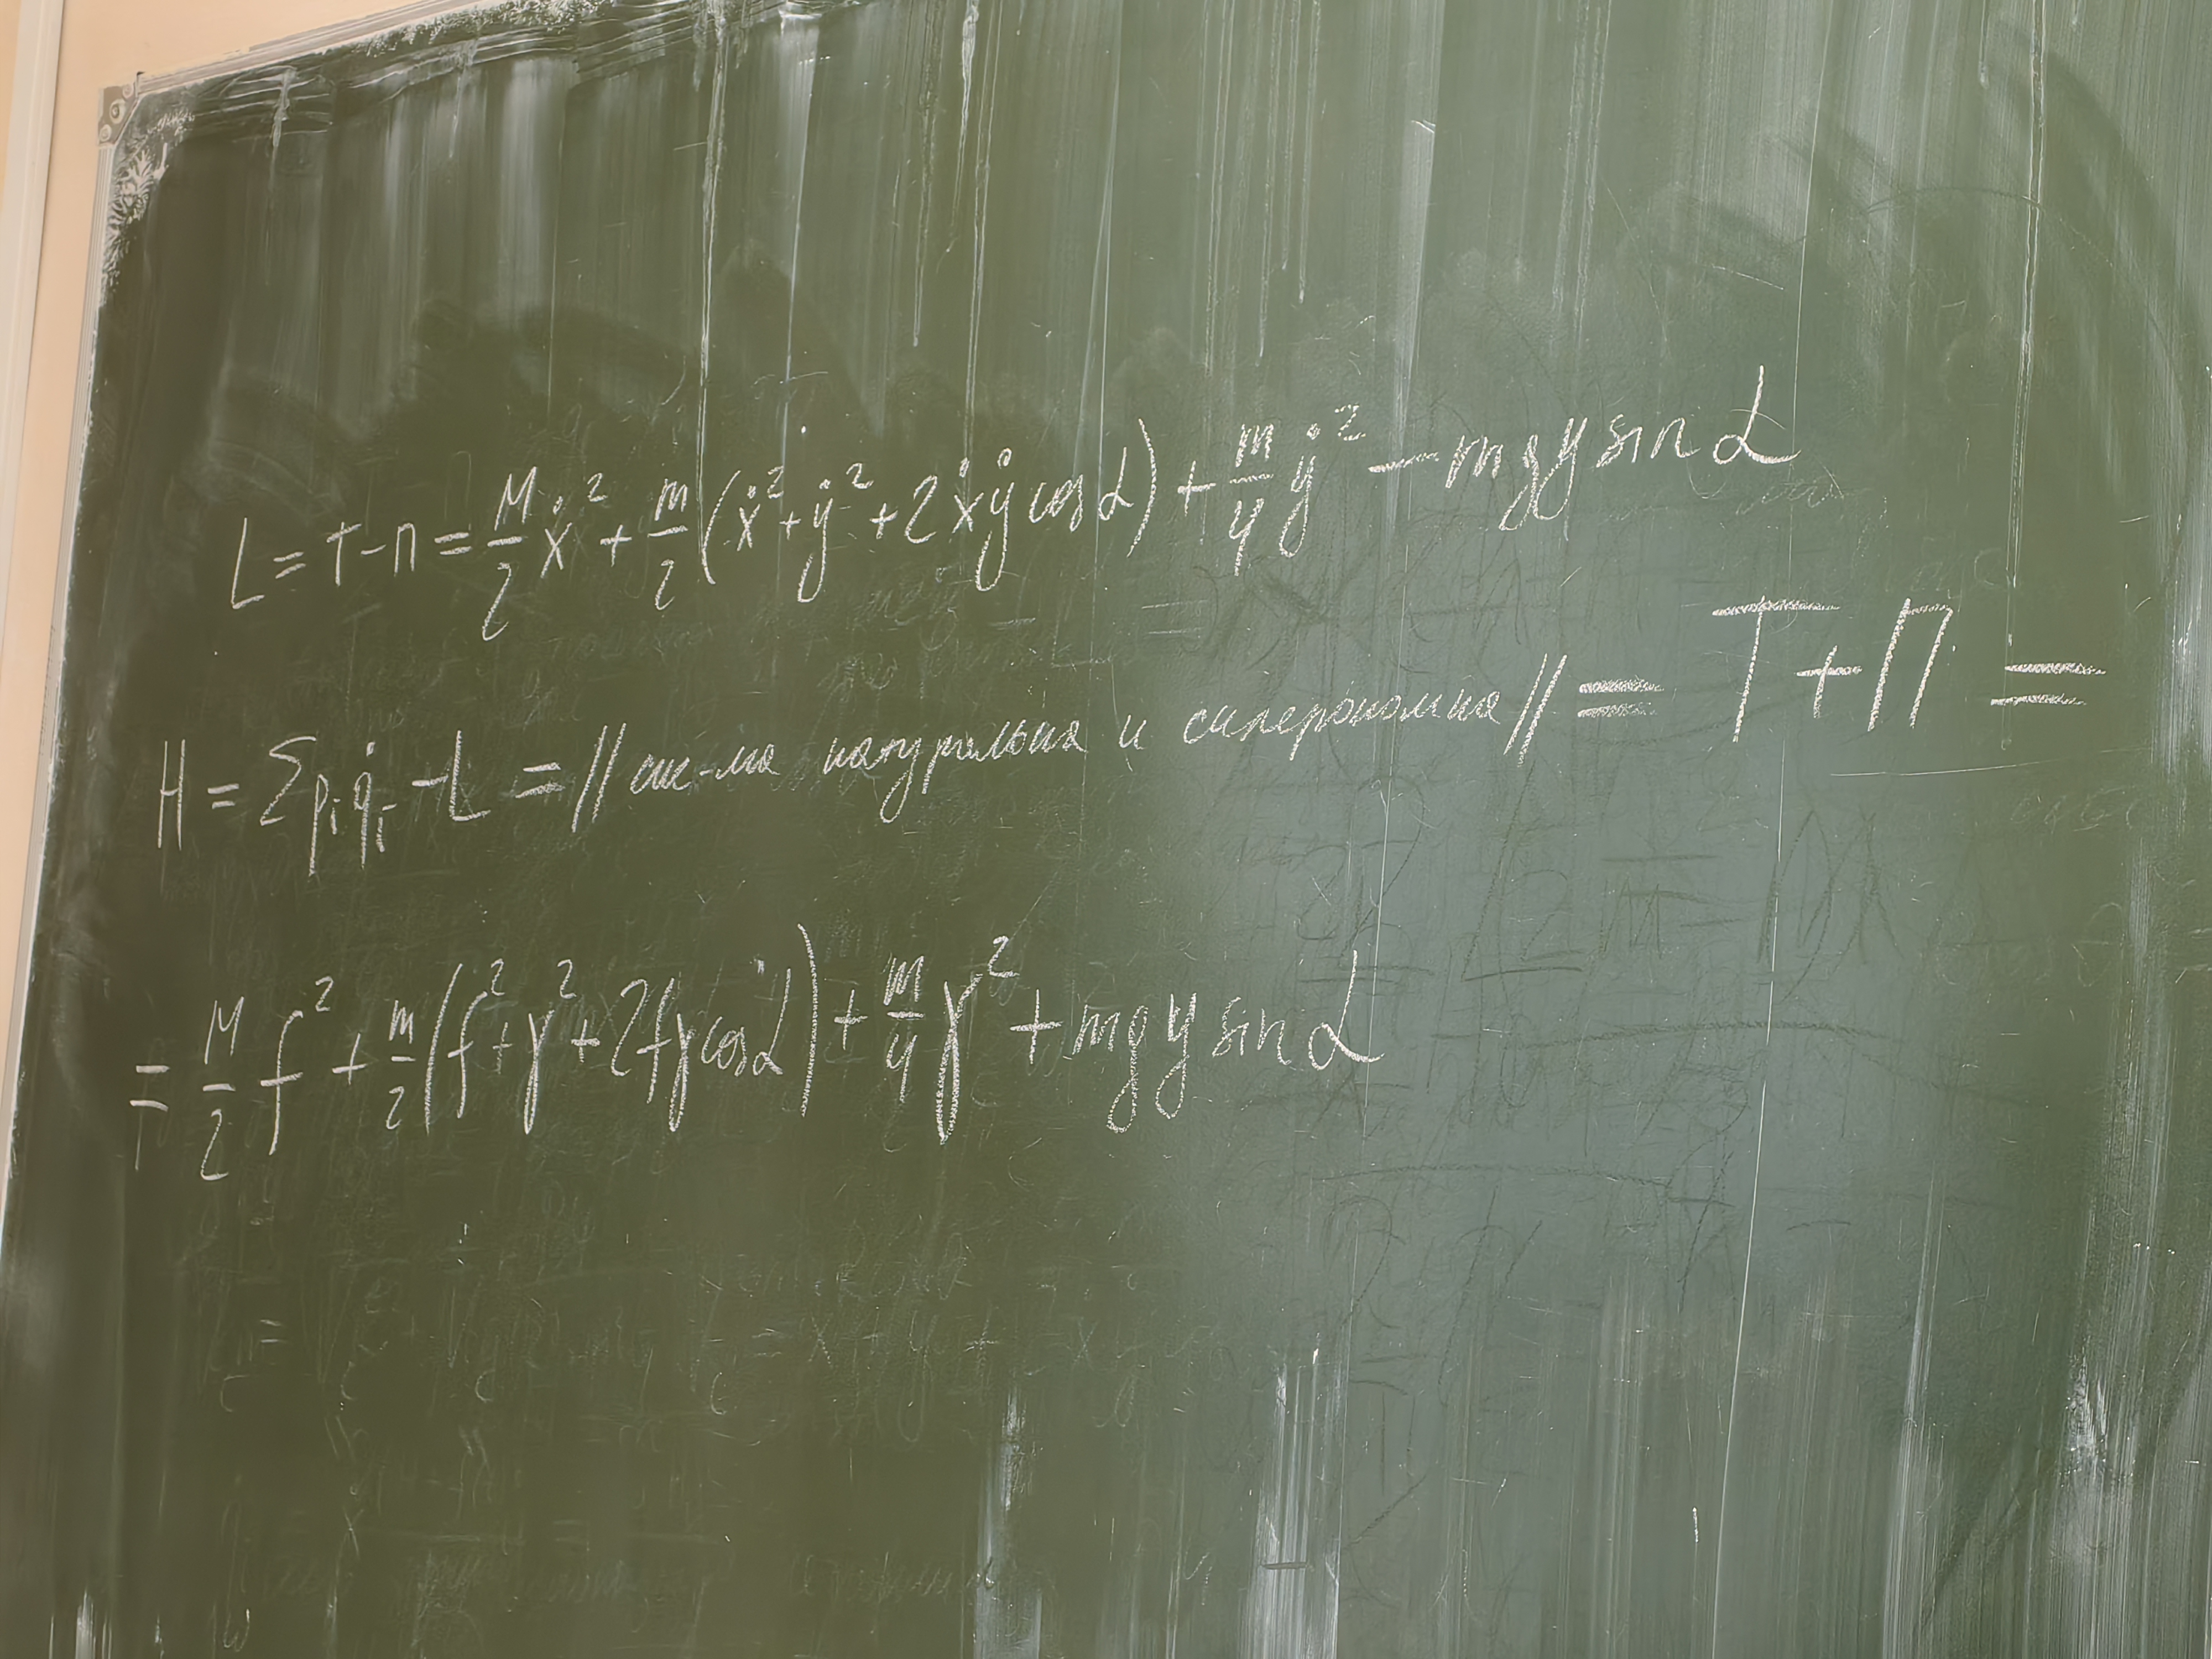 L = T - П = M/2 ẋ² + m/2 (ẋ² + ẏ² + 2ẋẏ cos α) + m/4 ẏ² - mgy sin α
H = Σ pᵢq̇ᵢ - L = // сис-ма натуральна и склерономна // = T + П =
= M/2 f² + m/2 (f² + γ² + 2fγ cos α) + m/4 γ² + mgy sin α